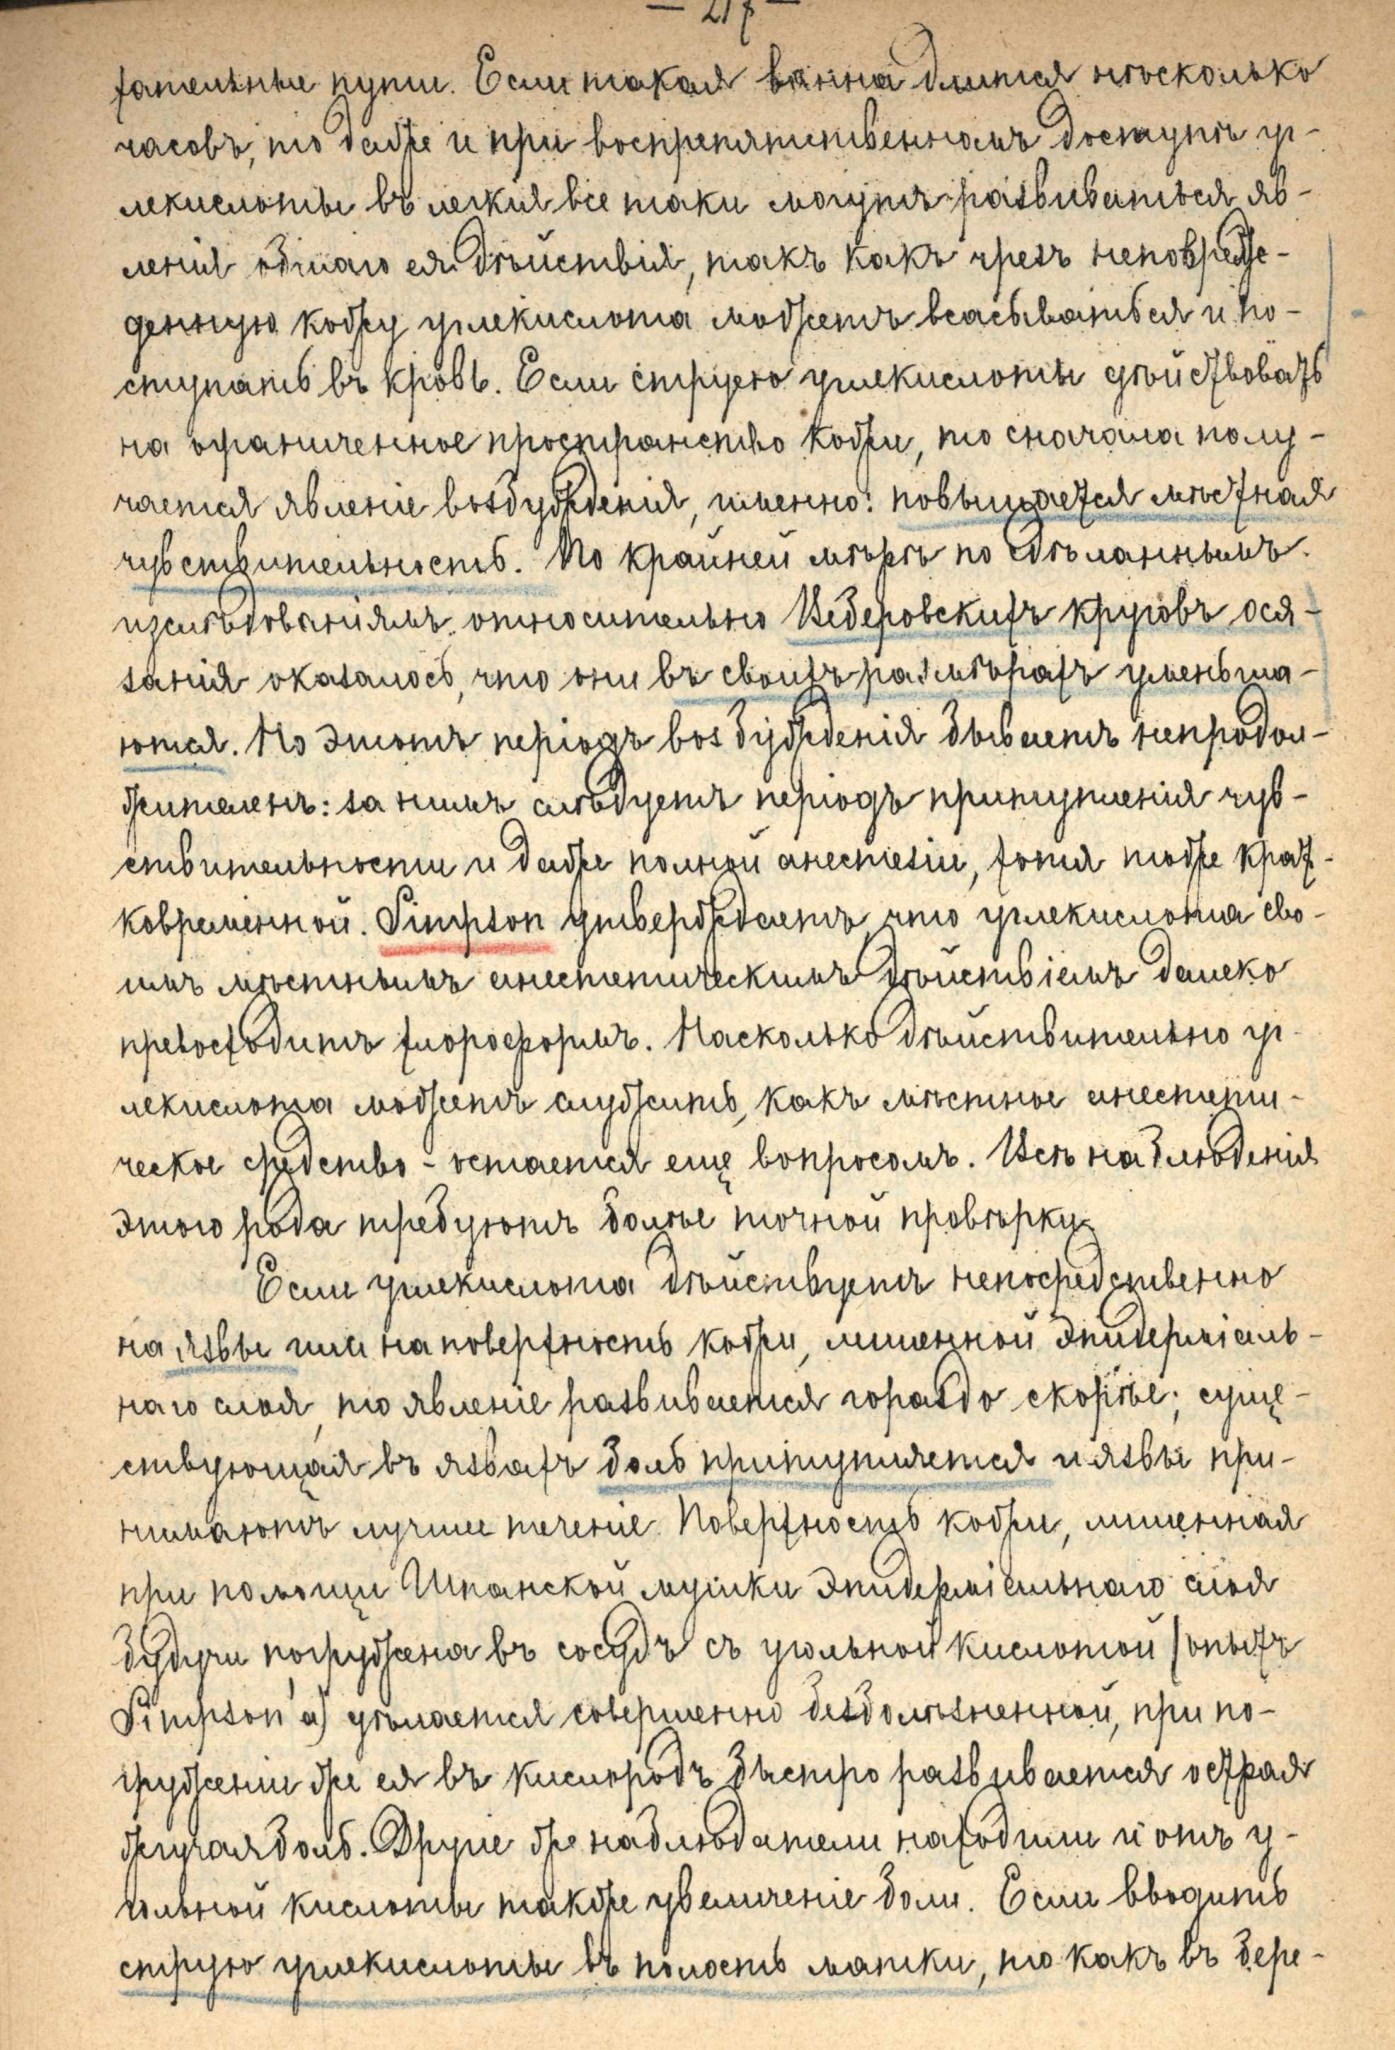 — 217 —
хательные пути. Если такая ванна длится нѣсколько
часовъ, то даже и при воспрепятственномъ доступѣ уг-
лекислоты въ легкія все таки могутъ развиваться яв-
ленія общаго ея дѣйствія, такъ какъ чрезъ неповреж-
денную кожу углекислота можетъ всасываться и по-
ступать въ кровь. Если струею углекислоты дѣйствовать
на ограниченное пространство кожи, то сначала полу-
чается явленіе возбужденія, именно: повышается мѣстная
чувствительность. По крайней мѣрѣ по сдѣланнымъ
изслѣдованіямъ относительно Веберовскихъ круговъ ося-
занія оказалось, что они въ своихъ размѣрахъ уменьша-
ются. Но этотъ періодъ возбужденія бываетъ непродол-
жителенъ: за нимъ слѣдуетъ періодъ притупленія чув-
ствительности и даже полной анестезіи, хотя тоже крат-
ковременной. Simpson утверждаетъ, что углекислота сво-
имъ мѣстнымъ анестетическимъ дѣйствіемъ далеко
превосходитъ хлороформъ. Насколько дѣйствительно уг-
лекислота можетъ служить, какъ мѣстное анестети-
ческое средство - остается еще вопросомъ. Всѣ наблюденія
этого рода требуютъ болѣе точной провѣрки.
Если углекислота дѣйствуетъ непосредственно
на язвы или на поверхность кожи, лишенной эпидерміаль-
наго слоя, то явленіе развивается гораздо скорѣе; суще-
ствующая въ язвахъ боль притупляется и язвы при-
нимаютъ лучшее теченіе. Поверхность кожи, лишенная
при помощи Шпанской мушки эпидерміальнаго слоя
будучи погружена въ сосудъ съ угольной кислотой (опытъ
Simpson'a) дѣлается совершенно безболѣзненной, при по-
груженіи же ея въ кислородъ быстро развивается острая
жгучая боль. Другіе же наблюдатели находили и отъ у-
гольной кислоты также увеличеніе боли. Если вводить
струю углекислоты въ полость матки, то какъ въ бере-